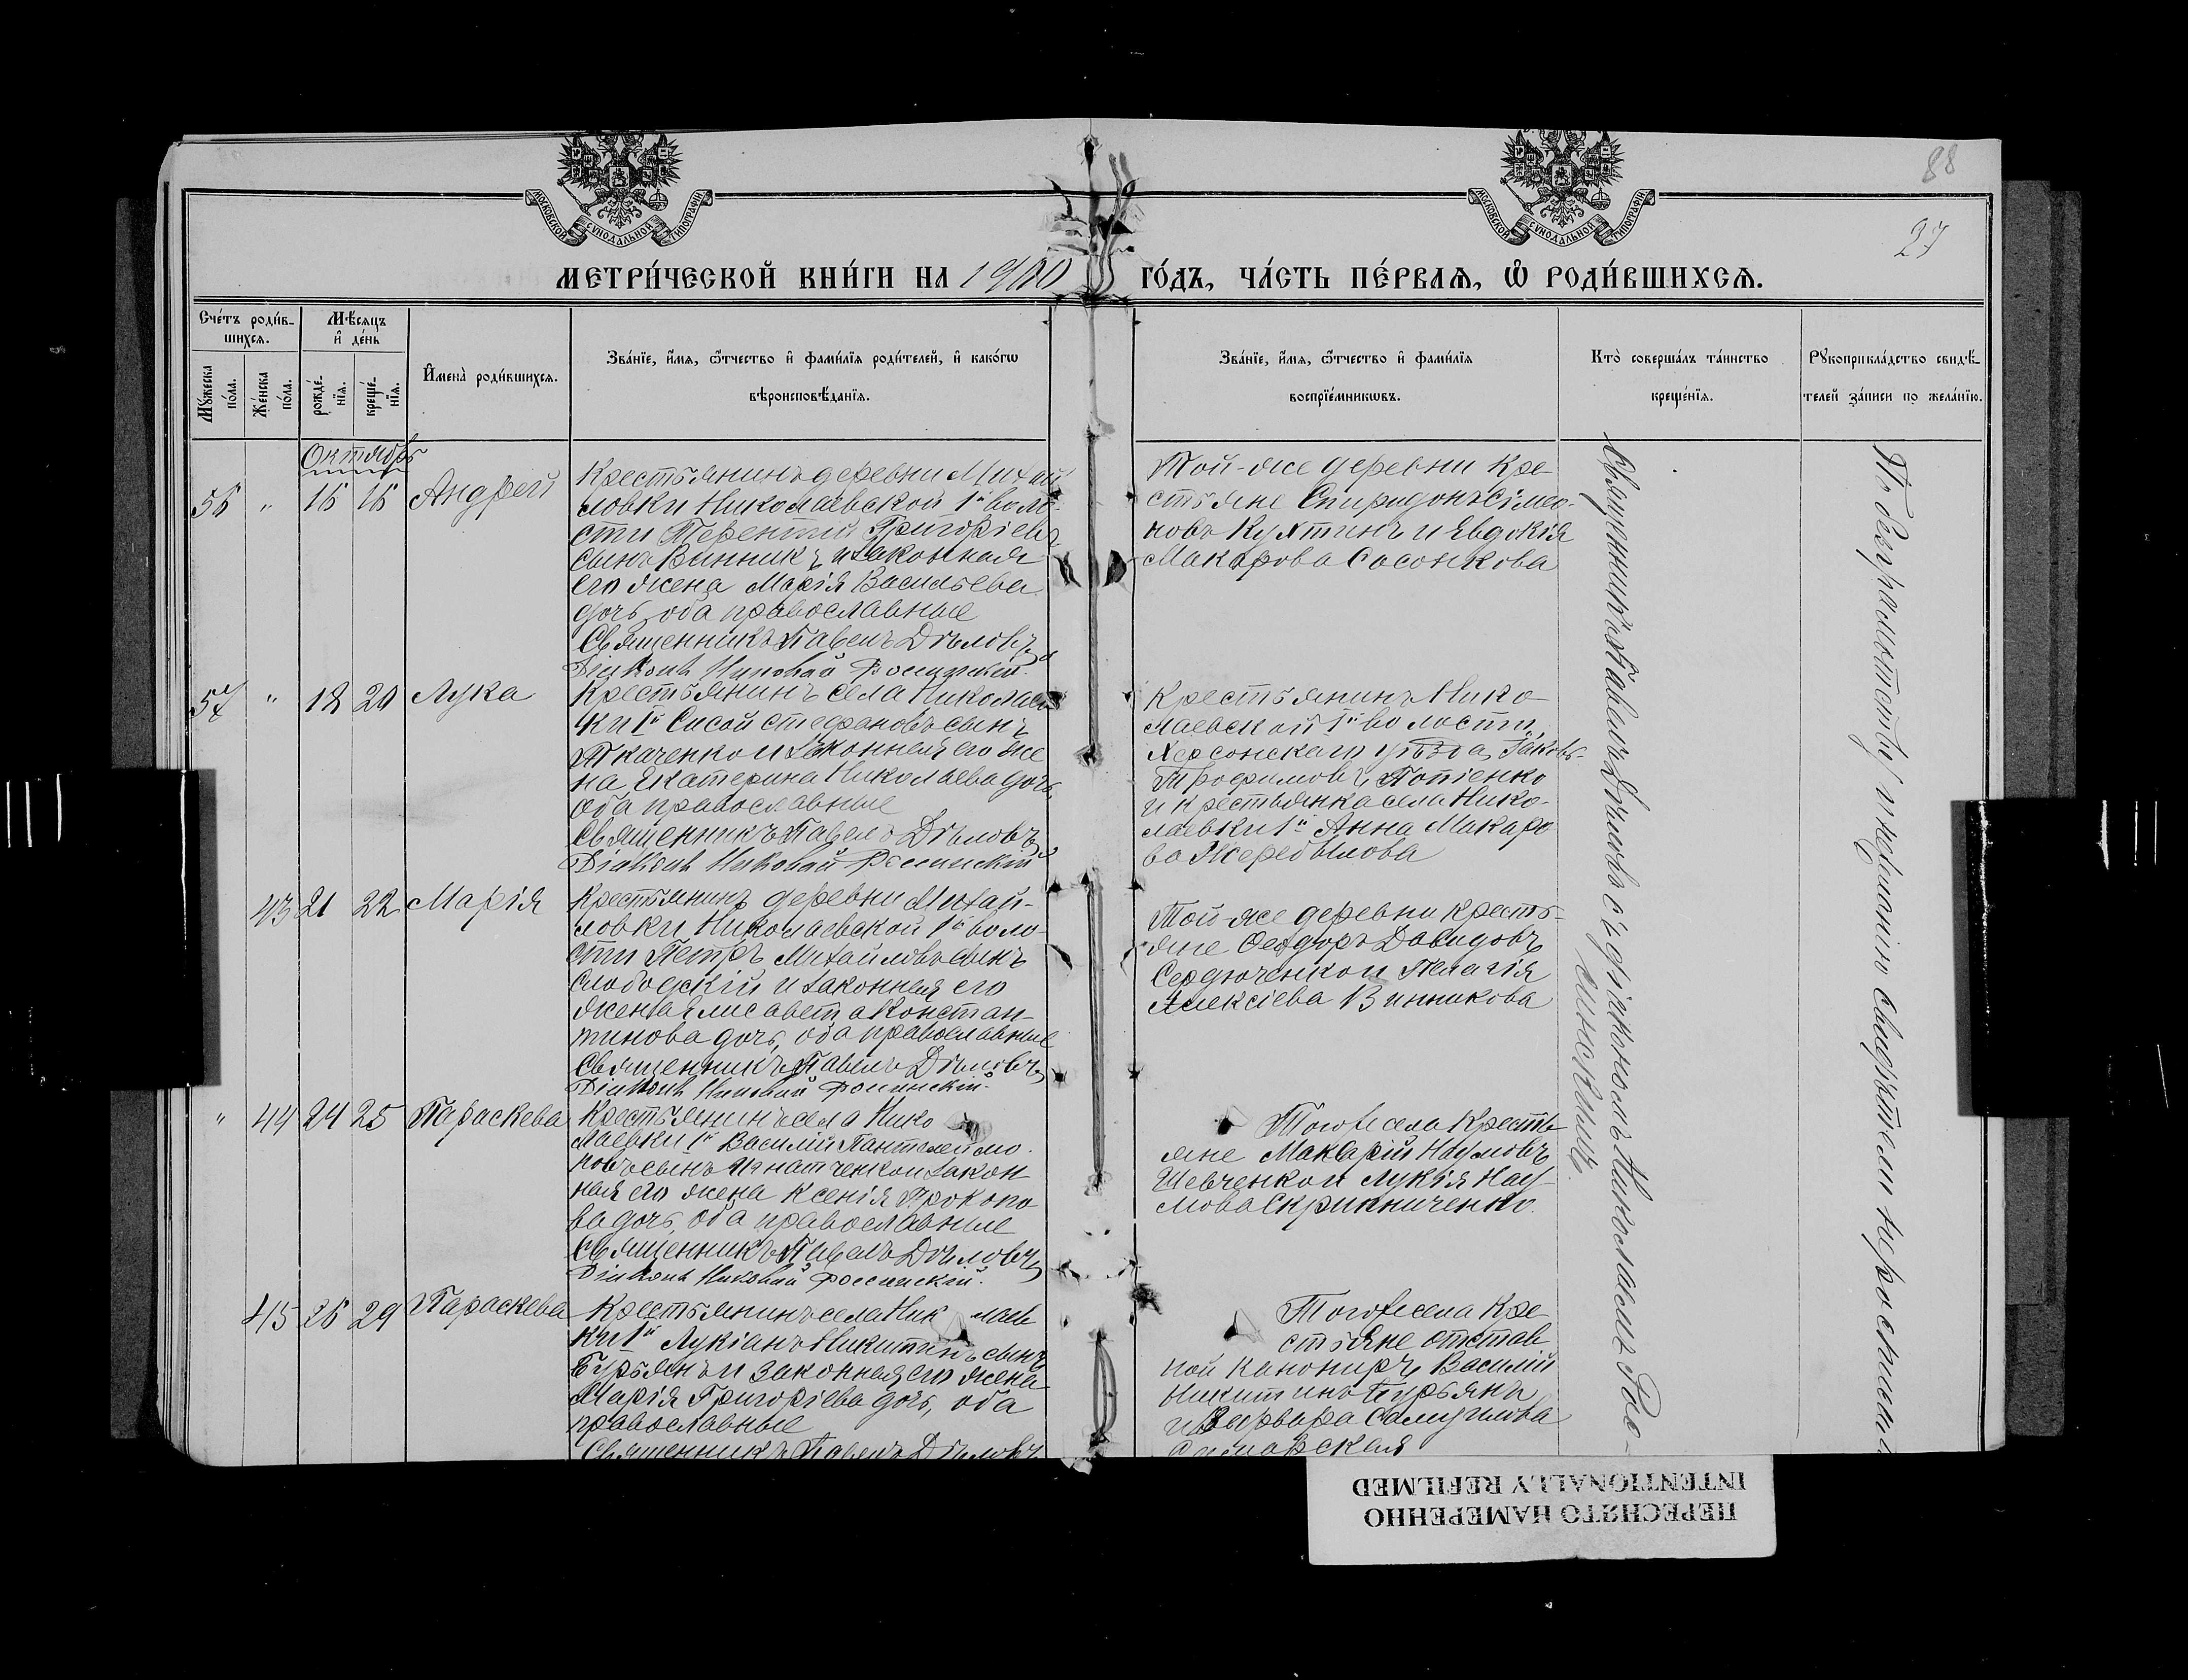 88
27
МОСКОВСКОЙ СѴНОДАЛЬНОЙ ТИПОГРАФІИ
МОСКОВСКОЙ СѴНОДАЛЬНОЙ ТИПОГРАФІИ
МЕТРИ́ЧЕСКОЙ КНИ́ГИ НА 1900 ГО́ДЪ, ЧА́СТЬ ПЕ́РВАѦ, Ѡ҆ РОДИ́ВШИХСѦ.
Сче́тъ роди́в-
шихся.
Мѣ́сяцъ
и҆ де́нь
Му́жеска
по́ла.
Же́нска
по́ла.
рожде́-
нїя.
креще́-
нїя.
И҆мена̀ роди́вшихся.
Зва́нїе, и҆́мя, ѻ҆́тчество и҆ фами́лїя роди́телей, и҆ како́гѡ
вѣроисповѣ́данїя.
Зва́нїе, и҆́мя, ѻ҆́тчество и҆ фами́лїя
воспрїе́мникѡвъ.
Кто̀ соверша́лъ та́инство
креще́нїя.
Рꙋкоприкла́дство свидѣ́-
телей за́писи по жела́нїю.
Октябрь
56 " 16 16 Андрей
Крестьянинъ деревни Михай
ловки Николаевской 1й воло-
сти Терентій Григоріевъ
сынъ Винникъ и законная
его жена Марія Васильева
дочь, оба православные
Священникъ Павелъ Дѣловъ
Діаконъ Николай Россинскій
Той-же деревни кре-
стьяне Спиридонъ Симео-
новъ Кухтинъ и Евдокія
Макарова Сосонкова
57 " 18 20 Лука
Крестьянинъ села Николаев
ки 1й Сисой Стефановъ сынъ
Ткаченко и законная его же
на Екатерина Николаева дочь,
оба православные
Священникъ Павелъ Дѣловъ
Діаконъ Николай Россинскій
Крестьянинъ Нико-
лаевской 1й волости,
Херсонскаго уѣзда, Іаковъ
Трофимовъ Потіенко
и крестьянка села Нико-
лаевки 1й Анна Макаро
ва Жеребилова
43 21 22 Марія
Крестьянинъ деревни Михай-
ловки Николаевской 1й воло
сти Петръ Михайловъ сынъ
Слободскій и законная его
жена Елисавета Констан-
тинова дочь, оба православные
Священникъ Павелъ Дѣловъ
Діаконъ Николай Россинскій.
Той-же деревни кресть-
яне Феодоръ Давидовъ
Сердюченко и Пелагія
Алексіева Винникова
" 44 24 25 Параскева
Крестьянинъ села Нико
лаевки 1й Василій Пантелеймо
новъ сынъ Игнатченко и закон
ная его жена Ксенія Прокопо
ва дочь, оба православные
Священникъ Павелъ Дѣловъ
Діаконъ Николай Россинскій.
Того же села кресть
яне Макарій Наумовъ
Шевченко и Лукія Нау-
мова Скрипниченко.
45 26 29 Параскева
Крестьянинъ села Ник лаев
ки 1й Лукіанъ Никитинъ сынъ
Бурьянъ и законная его жена
Марія Григоріева дочь, оба
православные
Священникъ Павелъ Дѣловъ
Того же села кре
стьяне отстав
ной канониръ Василій
Никитинъ Бурьянъ
и Варвара
Священникъ Павелъ Дѣловъ съ діакономъ Николаемъ Рос-
синскимъ.
По безграмотству и нежеланію свидѣтели не росписыв
ПЕРЕСНЯТО НАМЕРЕННО
INTENTIONALLY REFILMED